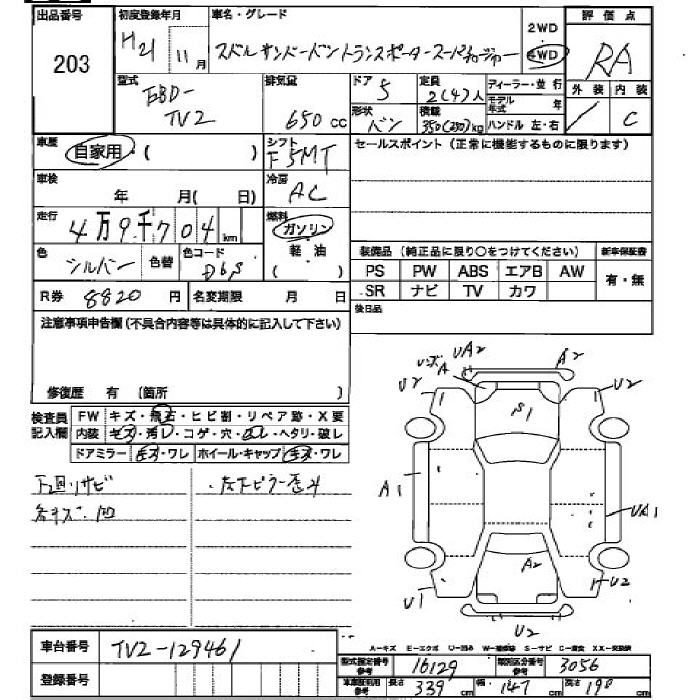 出品番号 初度登録年月 車名・グレード 2WD 評価点
203 H21 11月 スバル サンバーバン トランスポーター スーパーチャージャー 4WD RA
型式 排気量 ドア 定員 ディーラー・並行 外装 内装
EBD-TV2 650cc 5 2(4)人 モデル年式 年 C
形状 積載 ハンドル 左・右
バン 350(250)kg
車歴 自家用・( ) シフト F5MT セールスポイント(正常に機能するものに限ります)
車検 年 月( 日) 冷房 AC
走行 4万9千704km 燃料 ガソリン
軽・油
( )
色 シルバー 色替 色コード D6S
装備品(純正品に限り○をつけてください) 新車保証書
PS PW ABS エアB AW 有・無
SR ナビ TV カワ
R券 8820円 名変期限 月 日 後日品
注意事項申告欄(不具合内容等は具体的に記入して下さい)
修復歴 有 (箇所 )
検査員記入欄 FW キズ・飛石・ヒビ割・リペア跡・X要
内装 キズ・汚レ・コゲ・穴・ビレ・ヘタリ・破レ
ドアミラー キズ・ワレ ホイール・キャップ キズ・ワレ
下回リサビ
各キズ・凹
UA2 A2
A
U2 U2
S1
A1 UA1
A2
U1 U2
U2
車台番号 TV2-129461
登録番号
A-キズ E-エクボ U-凹み W-補修跡 S-サビ C-腐食 XX-交換済
型式指定番号 参考 16129 類別区分番号 参考 3056
車庫証明用 参考 長さ 339cm 幅 147cm 高さ 190cm